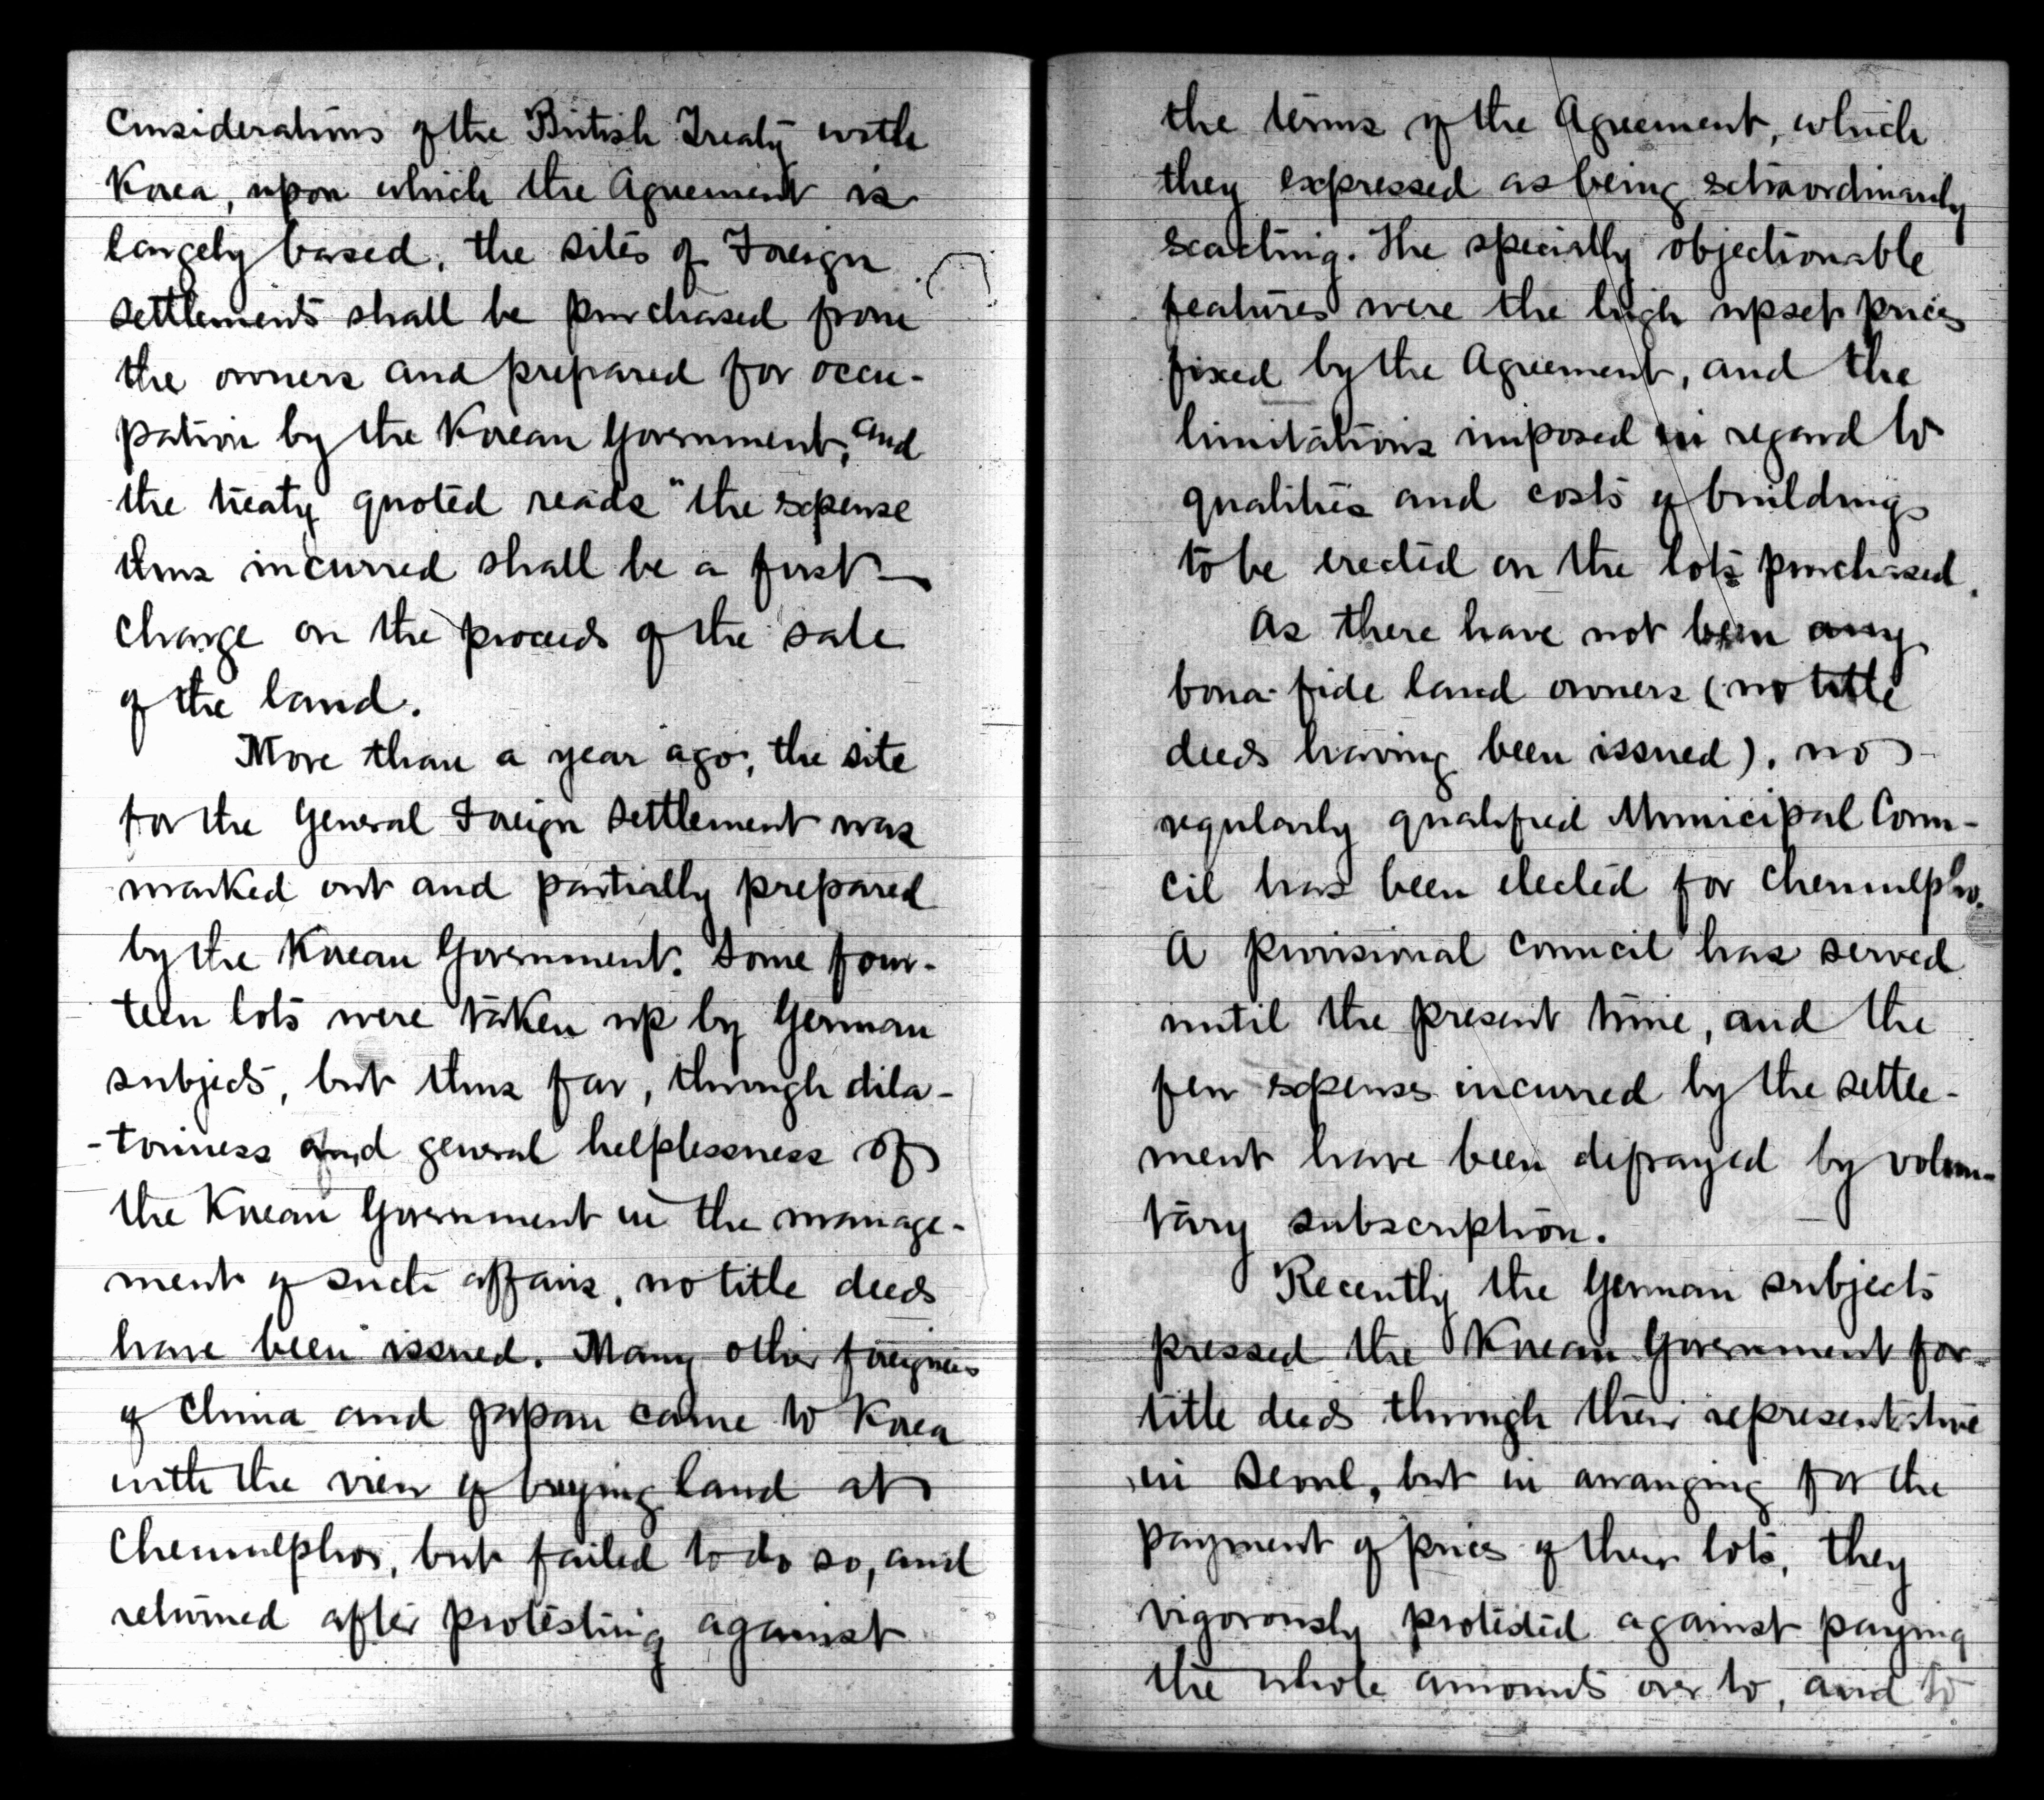 Considerations of the British Treaty with
Korea, upon which the Agreement is
largely based, the sites of Foreign
settlements shall be purchased from
the owners and prepared for occu-
pation by the Korean Government, and
the treaty quoted reads "the expense
thus incurred shall be a first
charge on the proceeds of the sale
of the land.
More than a year ago, the site
for the General Foreign Settlement was
marked out and partially prepared
by the Korean Government. Some four-
teen lots were taken up by German
subjects, but thus far, through dila-
-toriness and general helplessness of
the Korean Government in the manage-
ment of such affairs, no title deeds
have been issued. Many other foreigners
of China and Japan came to Korea
with the view of buying land at
Chemulpho, but failed to do so, and
returned after protesting against
the terms of the Agreement, which
they expressed as being extraordinarily
exacting. The specially objectionable
features were the high upset prices
fixed by the Agreement, and the
limitations imposed in regard to
qualities and costs of buildings
to be erected on the lots purchased.
As there have not been any
bona-fide land owners (no title
deeds having been issued), no
regularly qualified Municipal Coun-
cil has been elected for Chemulpho.
A provisional council has served
until the present time, and the
few expenses incurred by the settle-
ment have been defrayed by volun-
tary subscription.
Recently the German subjects
pressed the Korean Government for
title deeds through their representative
in Seoul, but in arranging for the
payment of prices of their lots, they
vigorously protested against paying
the whole amounts over to, and to